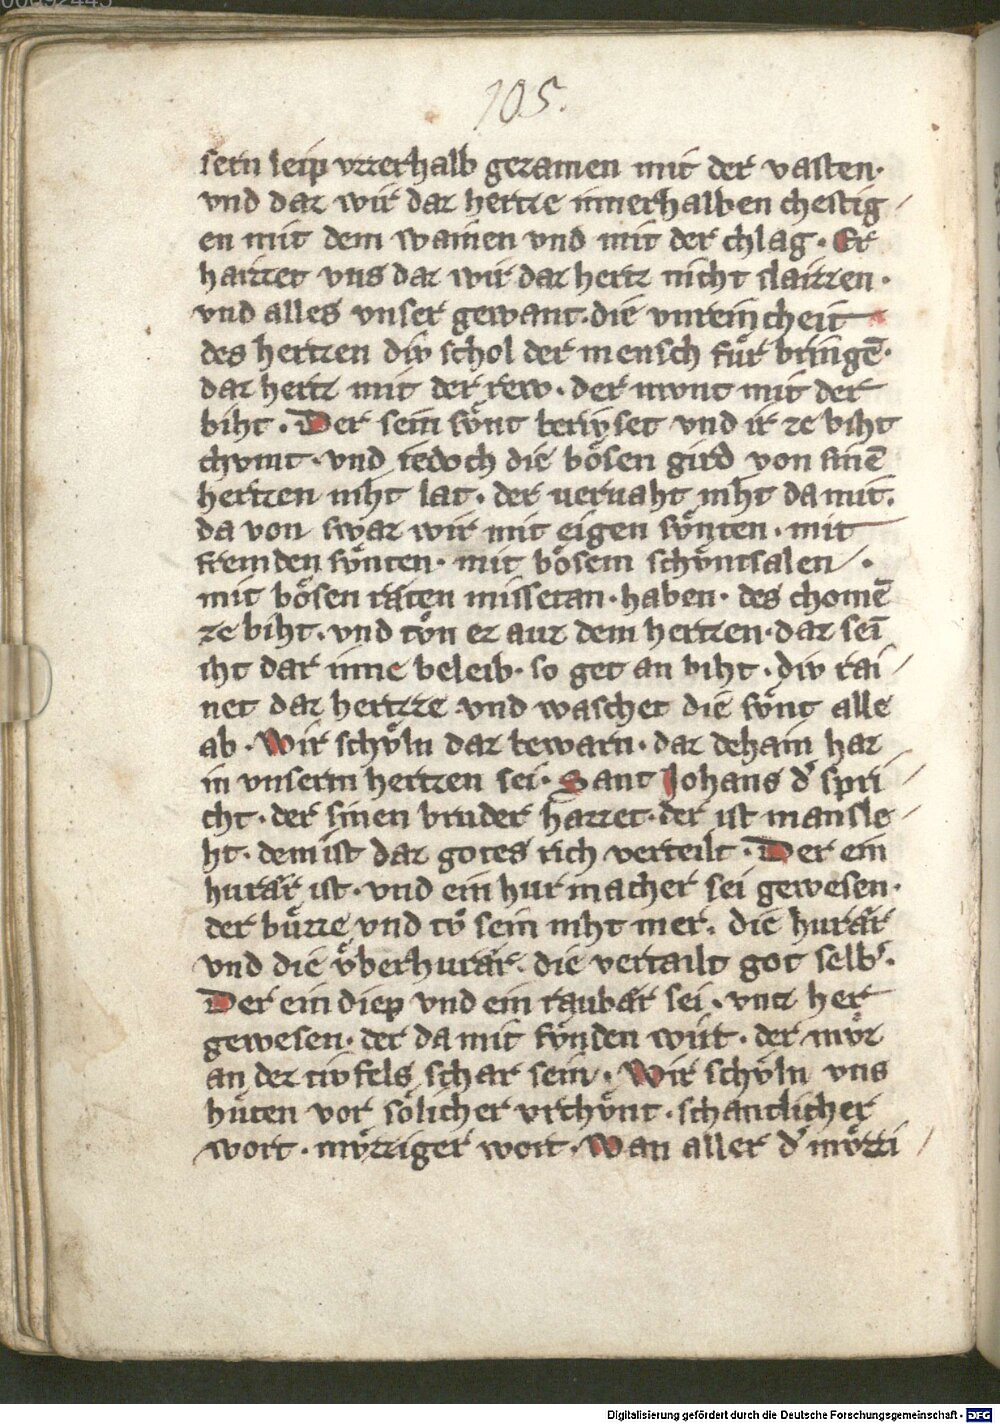 105.
sern leip vzzerhalb gezamen mit der vasten·
vnd daz wir daz hertze innerhalben chestig
en mit dem wainen vnd mit der chlag· Er
haizzet vns daz wir daz hertz nicht slaizzen·
vnd alles vnser gewant· die vnreincheit
des hertzen div schol der mensch fuͤr bringē·
daz hertz mit der rew· der mvnt mit der
biht· Der sein svͤnt beriv̇set vnd ir ze biht
chvmt· vnd iedoch die boͤsen gird von sinē
hertzen niht lat· der vervaht niht da mit·
da von swaz wir mit eigen svͤnten· mit
fremden svͤnten· mit boͤsem schvͤntsalen·
mit boͤsen raͤten missetan· haben· des chomē
ze biht· vnd tvͦn ez auz dem hertzen· daz sei
iht dar inne beleib· so get an biht· div rai
net daz hertzze vnd waschet die svͤnt alle
ab· Wir schvͤln daz bewarn· daz dehain haz
in vnserm hertzen sei· Sant Johans d͛ spri
cht· der sinen bruder hazzet· der ist mansle
ht· dem ist daz gotes rich verteilt· Der ein
huraͤr ist· vnd ein hurmacher sei gewesen·
der buͤzze vnd tvͦ sein niht mer· die huraͤr
vnd die v́berhuraͤr· die vertailt got selb͛·
Der ein diep vnd ein raubaͤr sei· vntz her
gewesen· der da mit fvnden wirt· der mvͦz
an dez tivfels schar sein· Wir schvͤln vns
huͤten vor soͤlicher vrchvͤnt· schantlicher
wort· mvͤzziger wort· Wan aller d͛ mvͤzzi
Digitalisierung gefördert durch die Deutsche Forschungsgemeinschaft - DFG